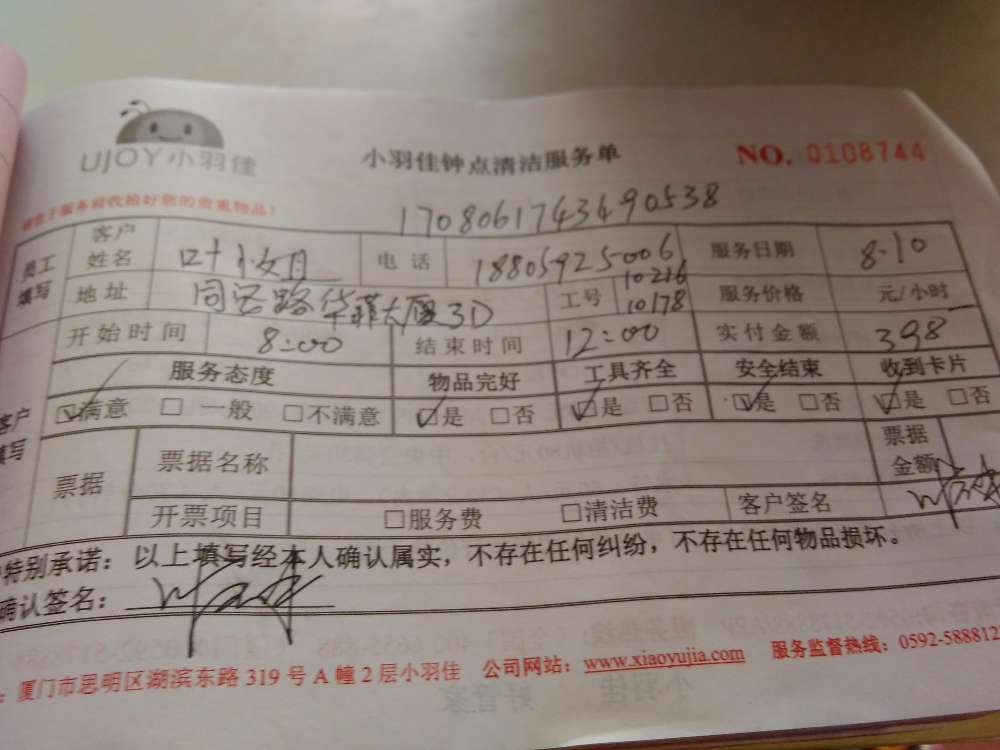 UJOY小羽佳
小羽佳钟点清洁服务单
NO. 0108744
请您于服务前收拾好您的贵重物品!
1708061743490538
员工填写
客户姓名 叶小姐 电话 18805925006 服务日期 8.10
地址 同安路华菲大厦3D 工号 10216 10178 服务价格 元/小时
客户填写
开始时间 8:00 结束时间 12:00 实付金额 398
服务态度 物品完好 工具齐全 安全结束 收到卡片
☑满意 □一般 □不满意 ☑是 □否 ☑是 □否 ☑是 □否 ☑是 □否
票据 票据名称 票据金额
开票项目 □服务费 □清洁费 客户签名
特别承诺:以上填写经本人确认属实,不存在任何纠纷,不存在任何物品损坏。
确认签名:
:厦门市思明区湖滨东路319号A幢2层小羽佳 公司网站:www.xiaoyujia.com 服务监督热线:0592-588812